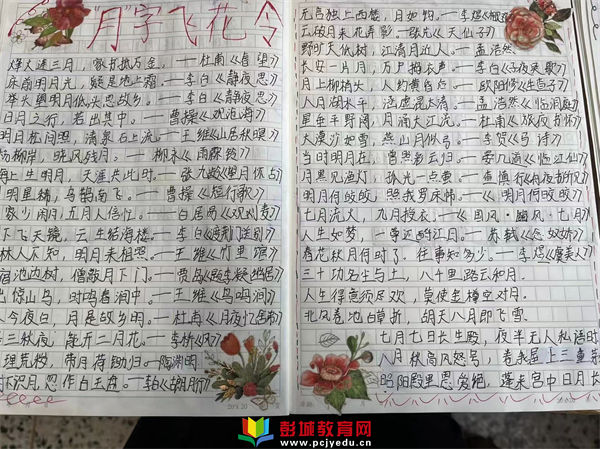 "月"字飞花令
烽火连三月,家书抵万金。——杜甫《春望》
床前明月光,疑是地上霜。——李白《静夜思》
举头望明月,低头思故乡。——李白《静夜思》
日月之行,若出其中。——曹操《观沧海》
明月松间照,清泉石上流。——王维《山居秋暝》
杨柳岸,晓风残月。——柳永《雨霖铃》
海上生明月,天涯共此时。——张九龄《望月怀古》
明星稀,乌鹊南飞。——曹操《短行歌》
家少闲月,五月人倍忙。——白居易《观刈麦》
下飞天镜,云生结海楼。——李白《渡荆门送别》
林人不知,明月来相照。——王维《竹里馆》
宿池边树,僧敲月下门。——贾岛《题李凝幽居》
出惊山鸟,时鸣春涧中。——王维《鸟鸣涧》
今夜白,月是故乡明。——杜甫《月夜忆舍弟》
三秋夜,能开二月花。——李桥《风》
理荒秽,带月荷锄归。——陶渊明
不识月,忽作白玉盘。——李白《朗月行》
无言独上西楼,月如钩。——李煜
云破月来花弄影。——张先《天仙子》
野旷天低树,江清月近人。——孟浩然
长安一片月,万户捣衣声。——李白《子夜吴歌》
月上柳梢头,人约黄昏后。——欧阳修《生查子》
八月湖水平,涵虚混太清。——孟浩然《临洞庭》
星垂平野阔,月涌大江流。——杜甫《旅夜书怀》
大漠沙如雪,燕山月似弓。——李贺《马诗》
当时明月在,曾照彩云归。——晏几道《临江仙》
月黑见渔灯,孤光一点萤。——查慎行《舟夜书所见》
明月何皎皎,照我罗床帏。——《明月何皎皎》
七月流火,九月授衣。——《国风·豳风·七月》
人生如梦,一尊还酹江月。——苏轼《念奴娇》
春花秋月何时了,往事知多少。——李煜《虞美人》
三十功名尘与土,八千里路云和月。
人生得意须尽欢,莫使金樽空对月。
北风卷地白草折,胡天八月即飞雪。
七月七日长生殿,夜半无人私语时
八月秋高风怒号,卷我屋上三重茅
昭阳殿里恩爱绝,蓬莱宫中日月长
彭城教育网
www.pcjyedu.cn